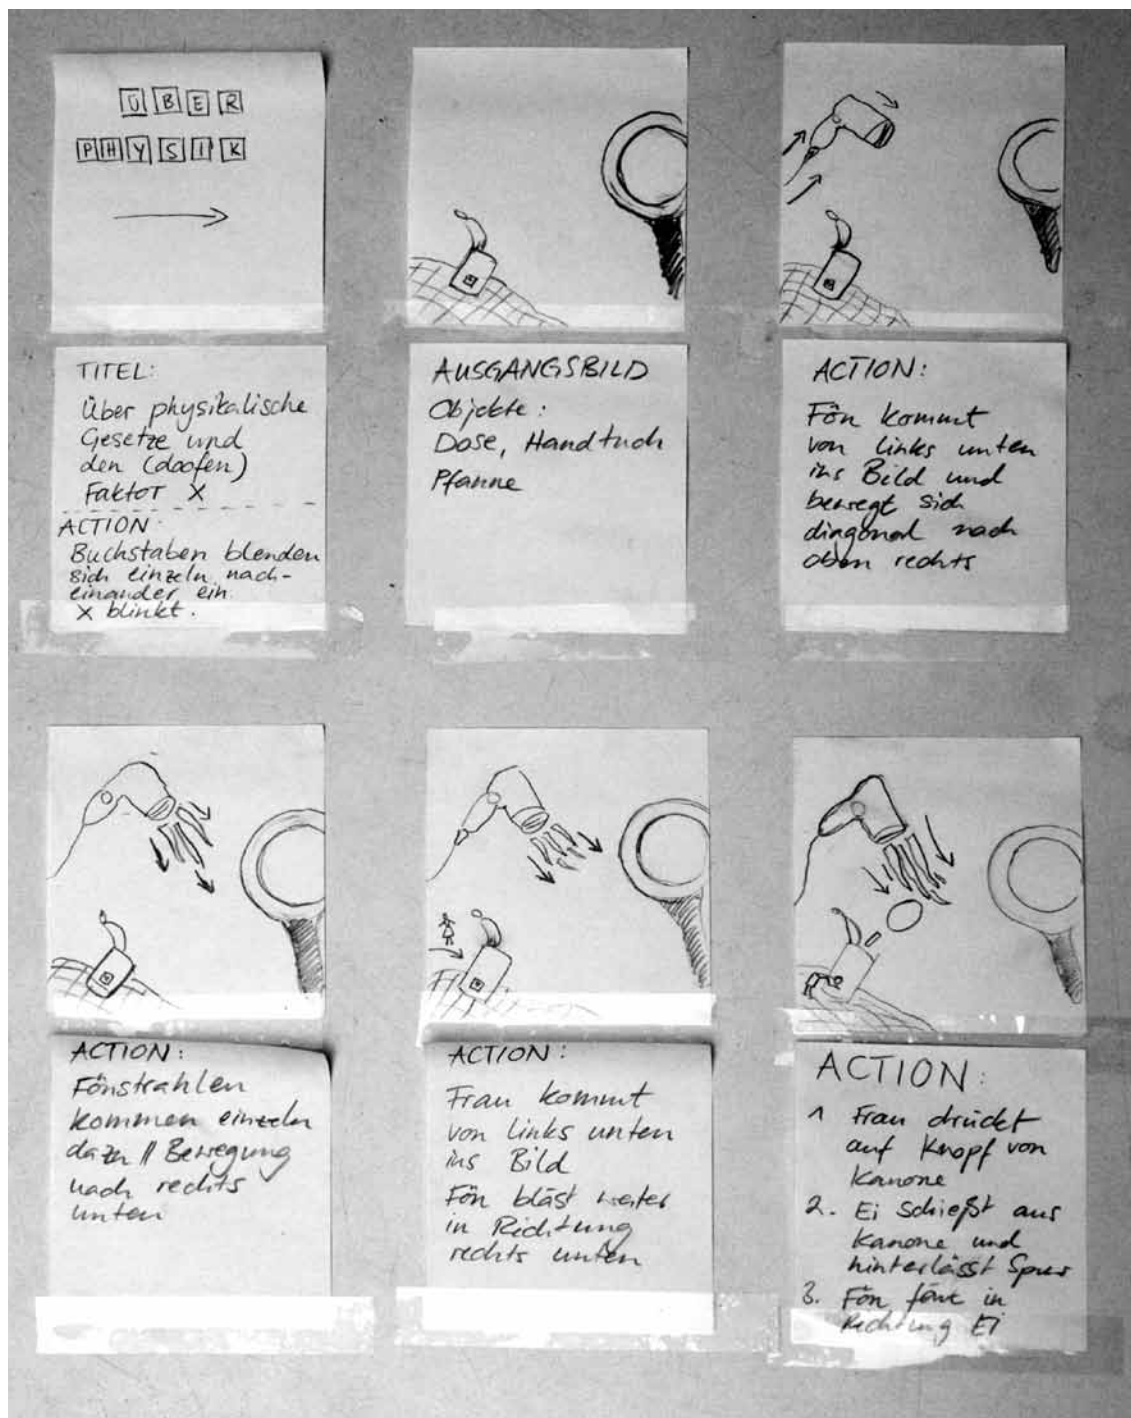 ÜBER
PHYSIK
TITEL:
Über physikalische
Gesetze und
den (doofen)
Faktor X
ACTION:
Buchstaben blenden
sich einzeln nach-
einander ein.
X blinkt.
AUSGANGSBILD
Objekte:
Dose, Handtuch
Pfanne
ACTION:
Fön kommt
von links unten
ins Bild und
bewegt sich
diagonal nach
oben rechts
ACTION:
Fönstrahlen
kommen einzeln
dazu // Bewegung
nach rechts
unten
ACTION:
Frau kommt
von links unten
ins Bild
Fön bläst weiter
in Richtung
rechts unten
ACTION:
1 Frau drückt
auf Knopf von
Kanone
2. Ei schießt aus
Kanone und
hinterlässt Spur
3. Fön fönt in
Richtung Ei